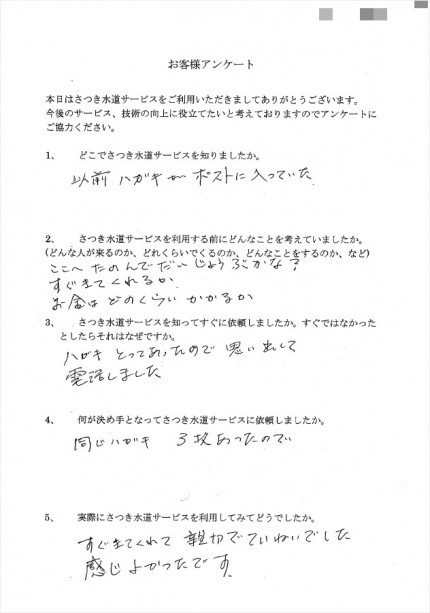 お客様アンケート
本日はさつき水道サービスをご利用いただきましてありがとうございます。
今後のサービス、技術の向上に役立てたいと考えておりますのでアンケートに
ご協力ください。
1、 どこでさつき水道サービスを知りましたか。
以前 ハガキが ポストに入っていた
2、 さつき水道サービスを利用する前にどんなことを考えていましたか。
(どんな人が来るのか、どれくらいでくるのか、どんなことをするのか、など)
ここへ たのんでだいじょうぶかな?
すぐきてくれるか
お金は どのくらい かかるか
3、 さつき水道サービスを知ってすぐに依頼しましたか。すぐではなかった
としたらそれはなぜですか。
ハガキ とってあったので 思い出して
電話しました
4、 何が決め手となってさつき水道サービスに依頼しましたか。
同じハガキ 3枚あったので
5、 実際にさつき水道サービスを利用してみてどうでしたか。
すぐきてくれて 親切でていねいでした
感じよかったです。